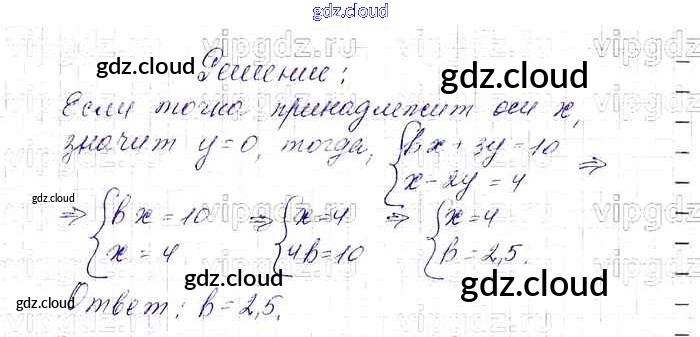 gdz.cloud
vipgdz.ru vipgdz.ru vipgdz
Решение:
gdz.cloud gdz.cloud
Если точка принадлежит оси x,
значит y=0, тогда, { bx + 3y = 10
x - 2y = 4 ⇒
gdz.cloud
⇒ { bx = 10 ⇒ { x = 4 ⇒ { x = 4
x = 4 4b = 10 b = 2,5.
gdz.cloud gdz.cloud
gdz.cloud
Ответ: b = 2,5.